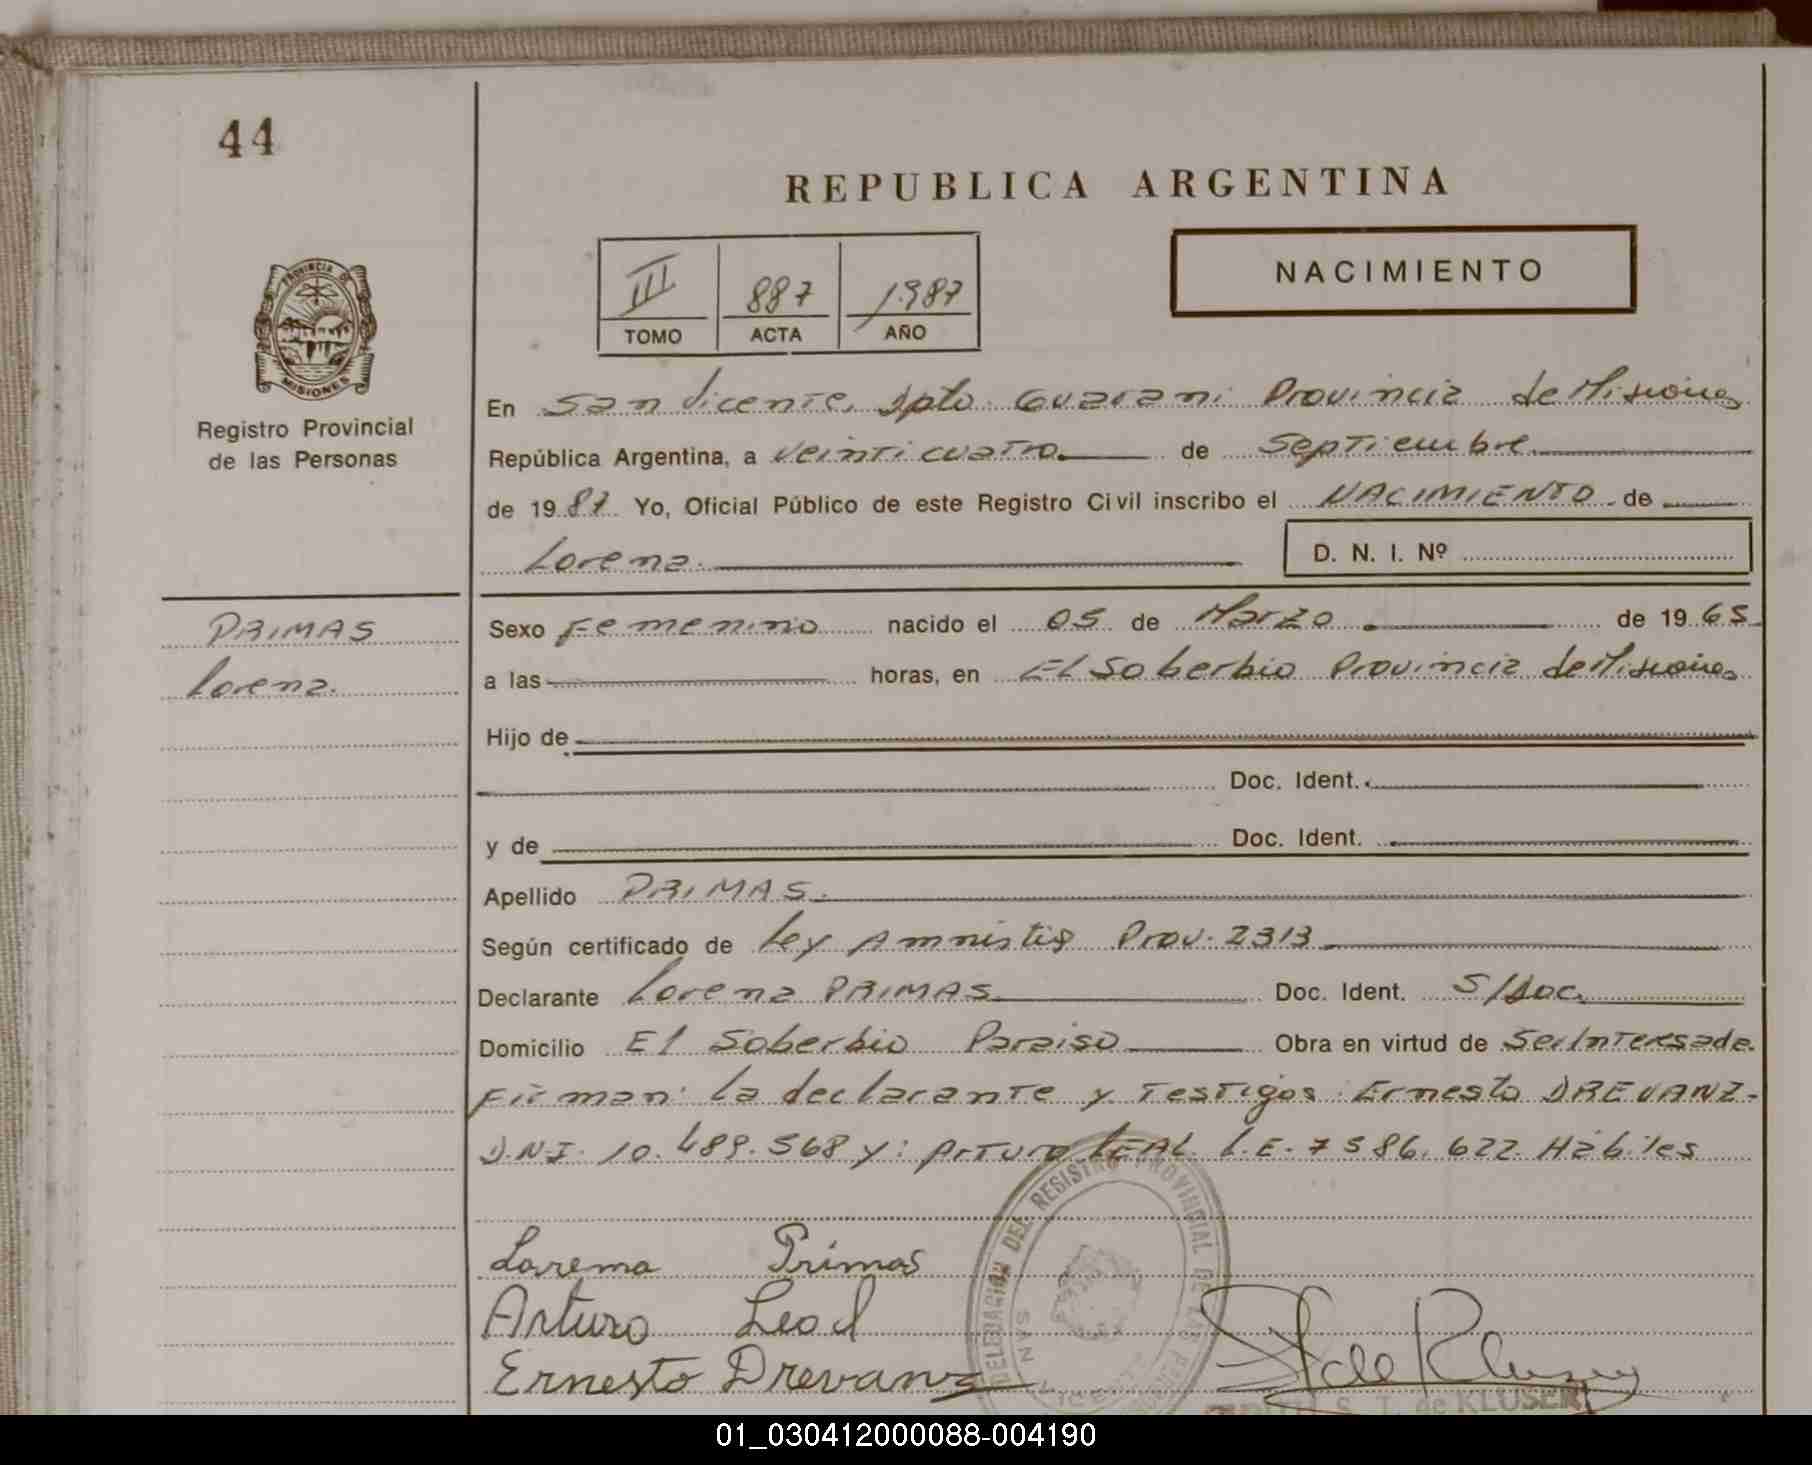 44
REPUBLICA ARGENTINA
NACIMIENTO
III 887 1.987
TOMO ACTA AÑO
PROVINCIA DE
MISIONES
Registro Provincial
de las Personas
En San Vicente, Dpto. Guarani Provincia de Misiones
República Argentina, a Veinticuatro de Septiembre
de 1987 Yo, Oficial Público de este Registro Civil inscribo el NACIMIENTO de
Lorena. D. N. I. Nº
PRIMAS
Lorena.
Sexo Femenino nacido el 05 de Marzo de 1965
a las horas, en El Soberbio Provincia de Misiones
Hijo de
Doc. Ident.
y de Doc. Ident.
Apellido PRIMAS.
Según certificado de Ley Amnistia Prov. 2313
Declarante Lorena PRIMAS Doc. Ident. S/Doc.
Domicilio El Soberbio Paraiso Obra en virtud de Ser Interesada.
Firman: la declarante y Testigos: Ernesto DREVANZ-
D.N.I. 10.489.568 y: Arturo LEAL L.E. 7586.622 Hábiles
DELEGACION DEL REGISTRO PROVINCIAL DE LAS
SAN VICENTE
Lorema Primas
Arturo Leal
Ernesto Drevanz
de Kluser
S. T. de KLUSER
01_030412000088-004190